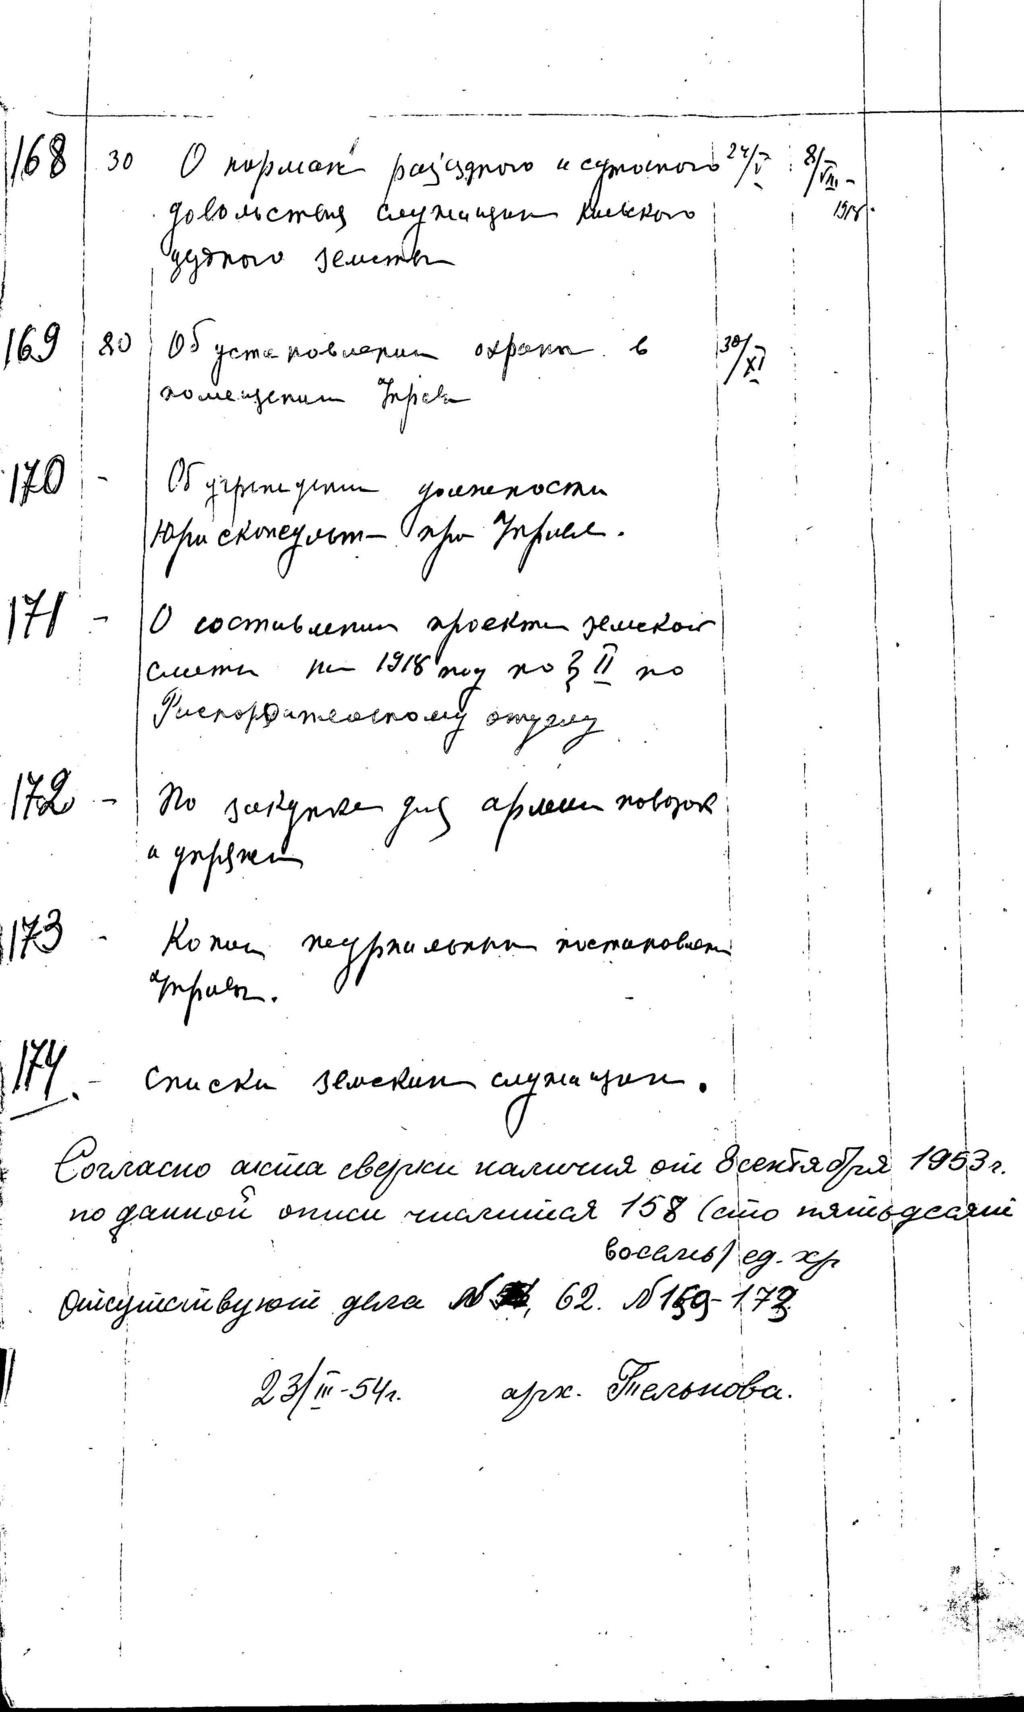 168 30 О нормах разъездного и суточного 24/V 8/VIII -
довольствия служащих Киевского 1918.
уездного земства
169 80 Об установлении охраны в 30/XI
помещении Управы
170 - Об учреждении должности
Юрисконсульта при Управе.
171 - О составлении проекта земской
сметы на 1918 год по § II по
Распорядительному отделу
172 - По закупке для армии повозок
и упряжи
173 - Копии журнальных постановлен
Управы.
174 - Списки земских служащих.
Согласно акта сверки наличия от 8 сентября 1953 г.
по данной описи числится 158 (сто пятьдесят
восемь) ед. хр
Отсутствуют дела № 62. № 159-172
23/III-54г. арх. Тельнова.